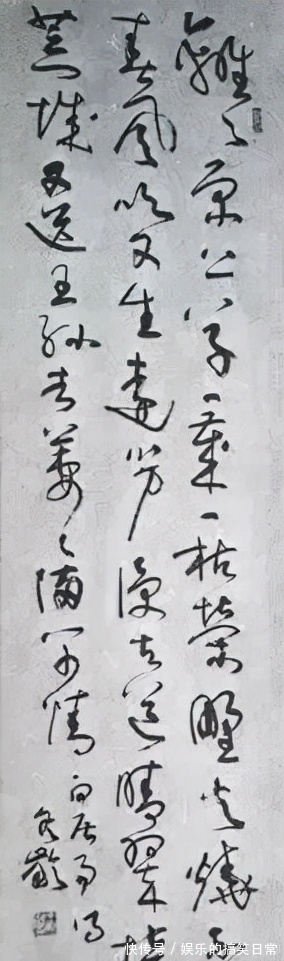 離々原上草一歲一枯榮野火燒不
春風吹又生遠芳侵古道晴翠接
荒城又送王孫去萋々滿別情白居易詩
冬齡
快传号 / 娱乐的搞笑日常